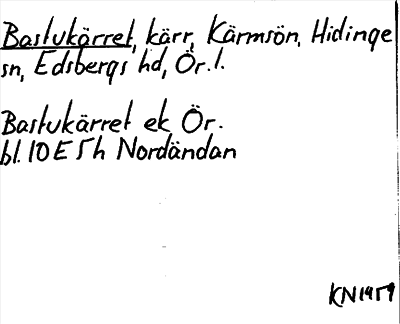 Bastukärret, kärr, Kärmsön, Hidinge
sn, Edsbergs hd, Ör. l.
Bastukärret ek Ör.
bl. 10E 5h Nordändan
KN 1959